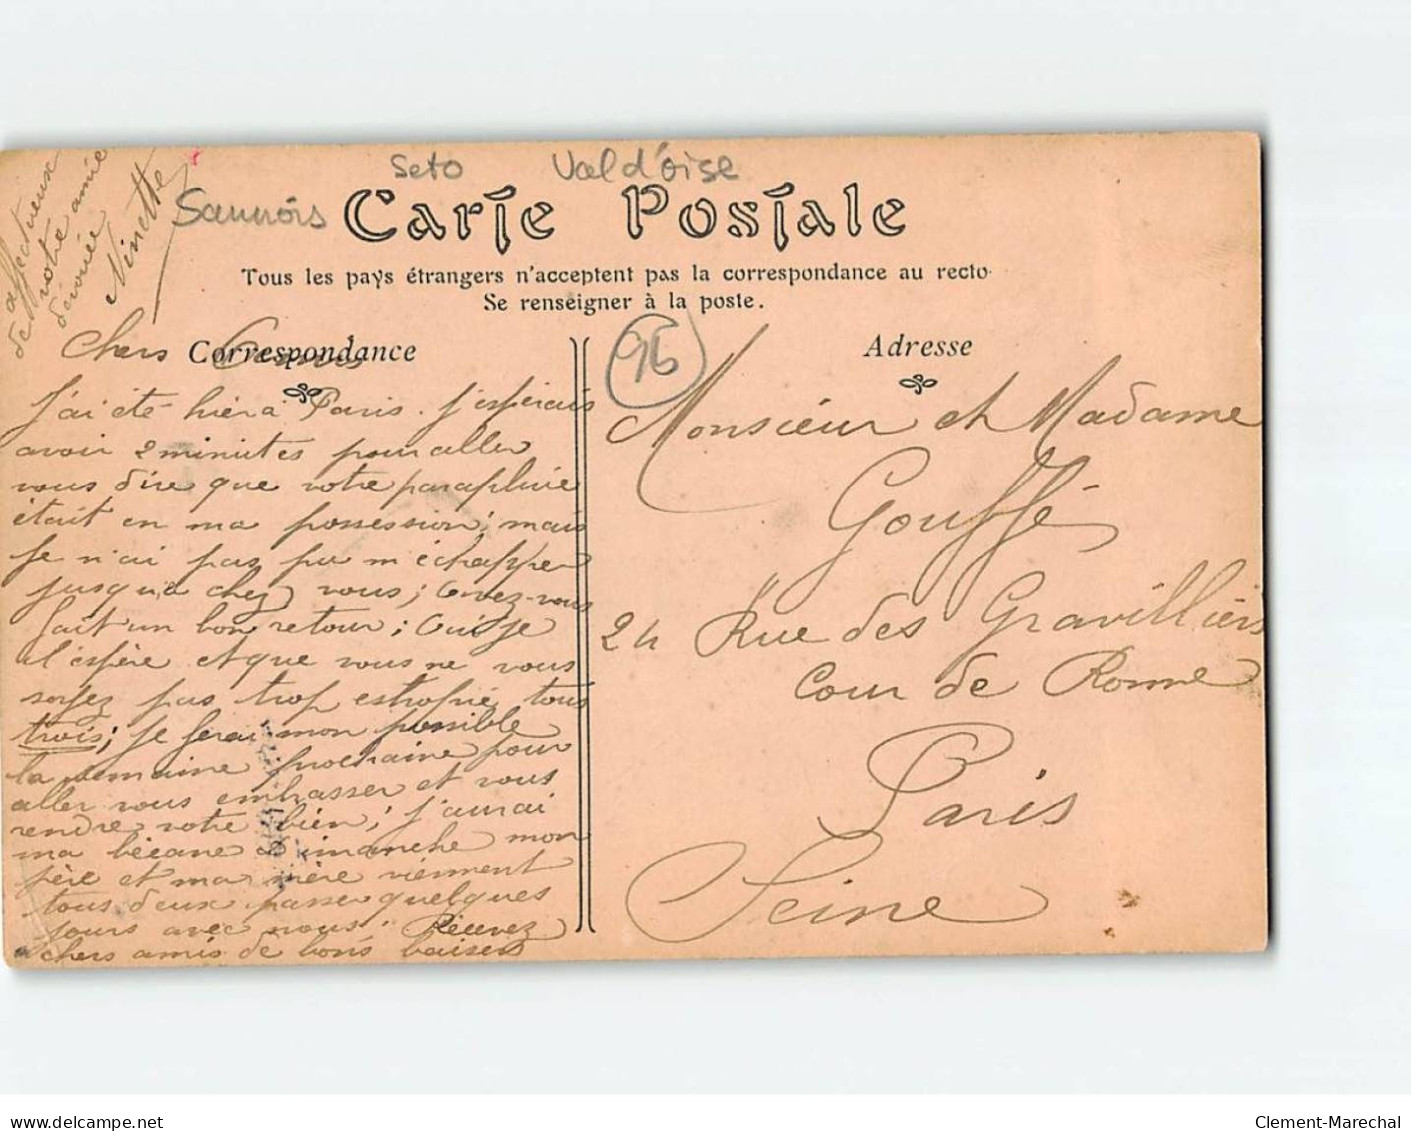 Seto Val d'oise
Sannois
Carte Postale
Tous les pays étrangers n'acceptent pas la correspondance au recto
Se renseigner à la poste.
Correspondance
Adresse
95
Chers
J'ai été hier à Paris. J'espérais
avoir 2 minutes pour aller
vous dire que votre parapluie
était en ma possession; mais
je n'ai pas pu m'échapper
jusqu'à chez vous; avez-vous
fait un bon retour; Oui je
l'espère et que vous ne vous
soyez pas trop estropié tous
trois; je ferai mon possible
la semaine prochaine pour
aller vous embrasser et vous
rendre votre bien; j'aurai
ma bécane dimanche mon
père et ma mère viennent
tous deux passer quelques
jours avec nous. Recevez
chers amis de bons baisers
affectueux
de votre amie
dévouée
Ninette
Monsieur et Madame
Gouffé
24 Rue des Gravilliers
Cour de Rome
Paris
Seine
www.delcampe.net
Clement-Marechal